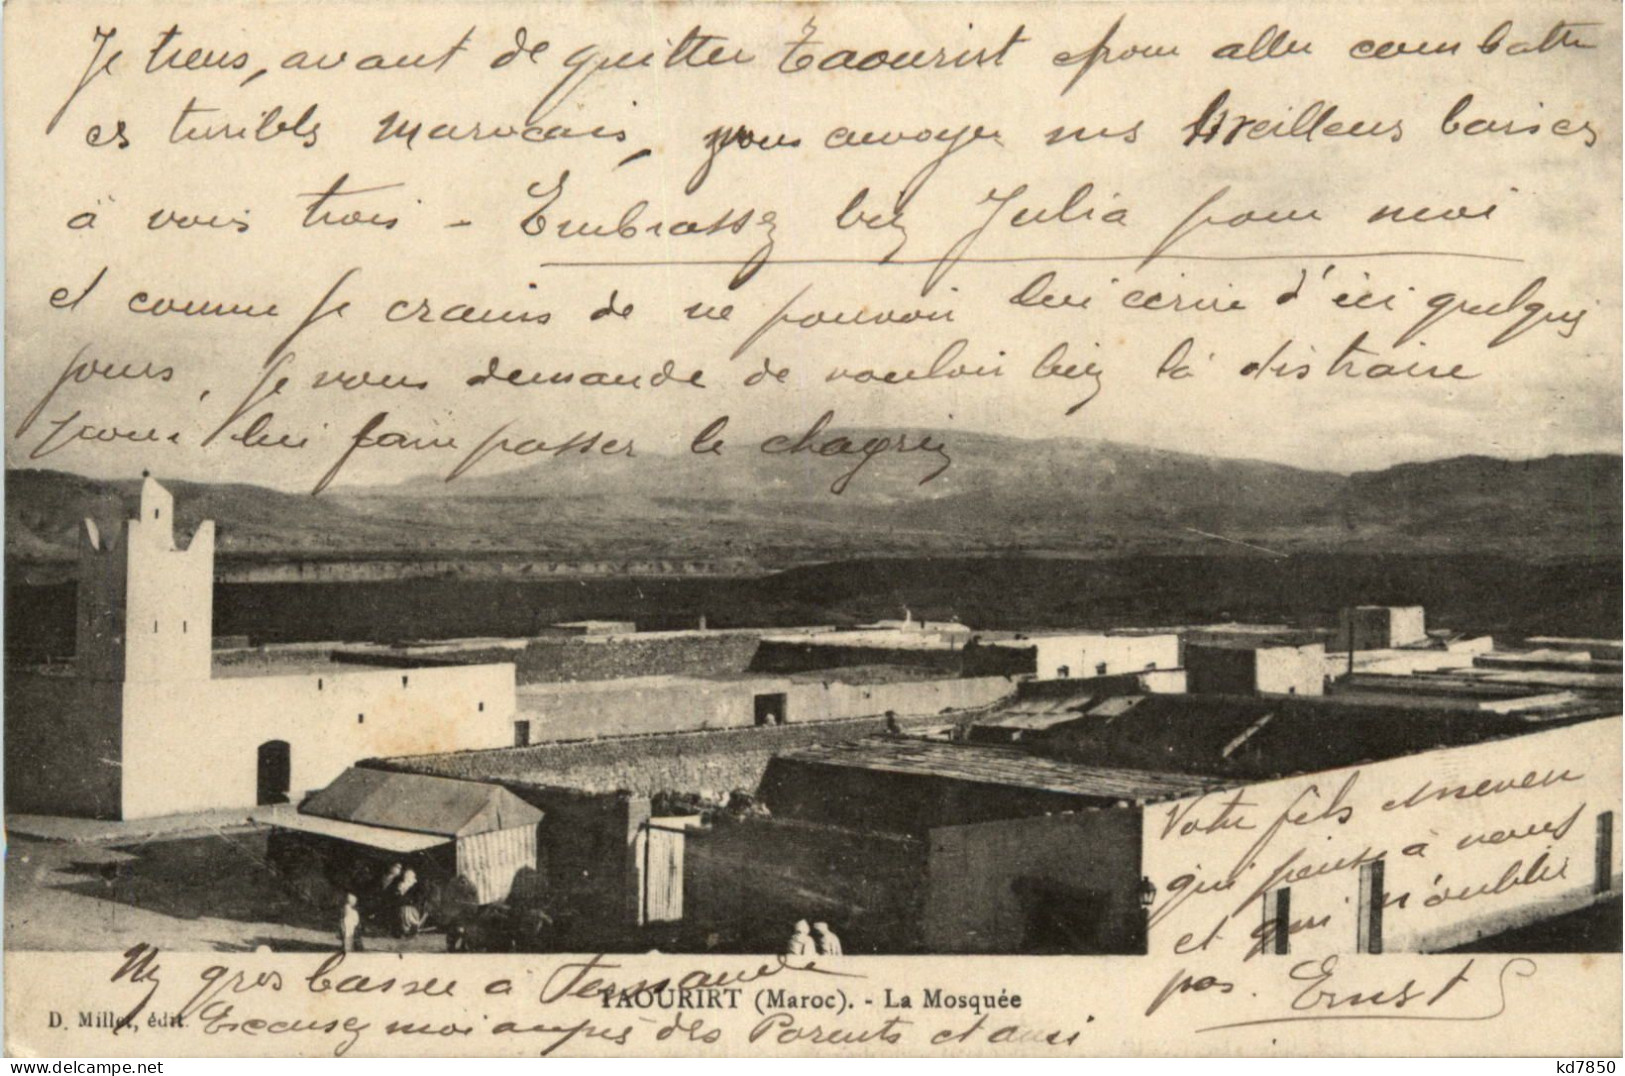 Je tiens, avant de quitter Taourirt pour aller combattre
ces terribles marocains, vous envoyer mes meilleurs baisers
à vous trois - Embrassez bien Julia pour moi
et comme je crains de ne pouvoir lui écrire d'ici quelques
jours, je vous demande de vouloir bien la distraire
pour lui faire passer le chagrin
Votre fils
qui pense à vous
et qui n'oublie
pas. Ernst
gros baiser à Fernande
TAOURIRT (Maroc). - La Mosquée
D. Millet, édit.
Excusez moi auprès des Parents et amis
kd7850